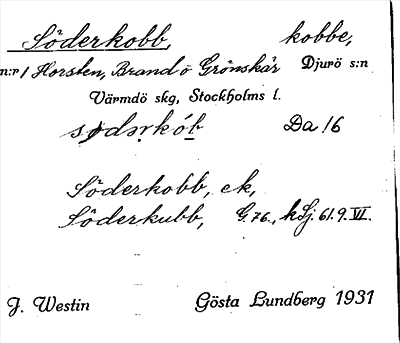 Söderkobb, kobbe,
n:r 1 Horsten, Brand ö Grönskär Djurö s:n
Värmdö skg, Stockholms l.
Da 16
Söderkobb, ek,
Söderkubb, G. 76., kSj. 61. 9. VI.
J. Westin Gösta Lundberg 1931